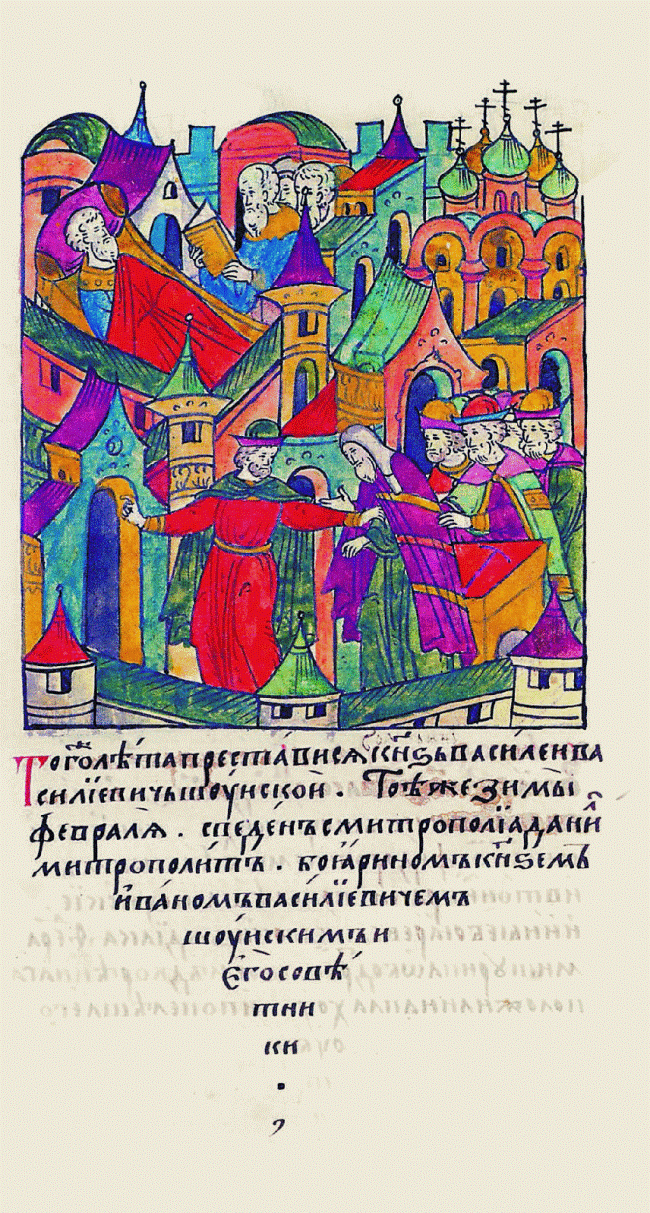 Тогоⷤ лѣта престависѧ кнѧѕь василеи ва
силїевичь шоуискои . Тоѣже зимы
февралѧ . сведенъ смитрополїа данил
митрополитъ . боѧриномъ кнѧѕемъ
иваномъ василїевичемъ
шоуискимъ и
его совѣ
тни
ки